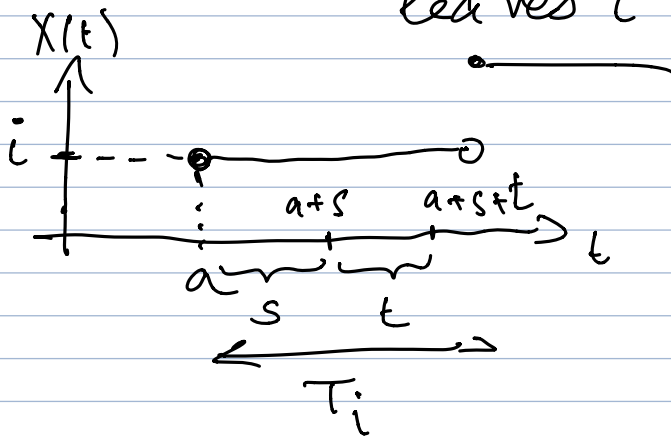 leaves i
X(t)
i
a+s a+s+t
t
a
s t
T_i